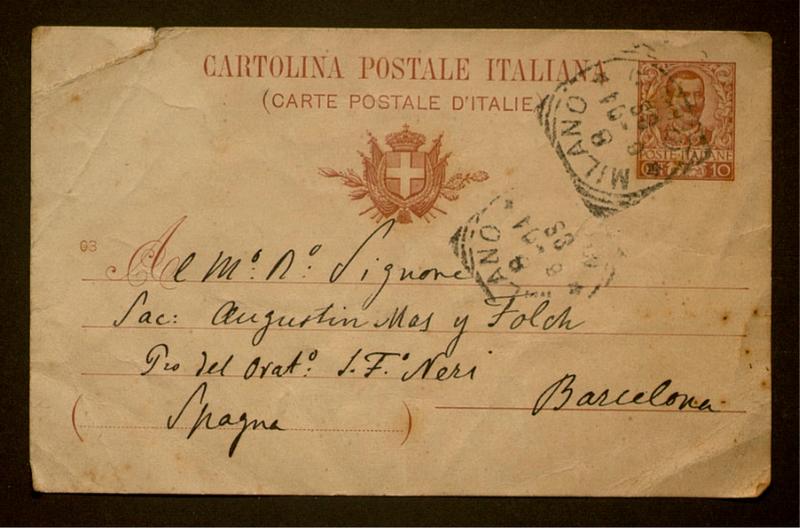 CARTOLINA POSTALE ITALIANA
(CARTE POSTALE D'ITALIE)
POSTE ITALIANE
10
MILANO
8 - 04
8 S
LANO
8 - 04
8 S
03
Al M.º R.º Signore
Sac: Augustin Mas y Folch
Pro del Orat.º S. F.º Neri
Barcelona
(Spagna)